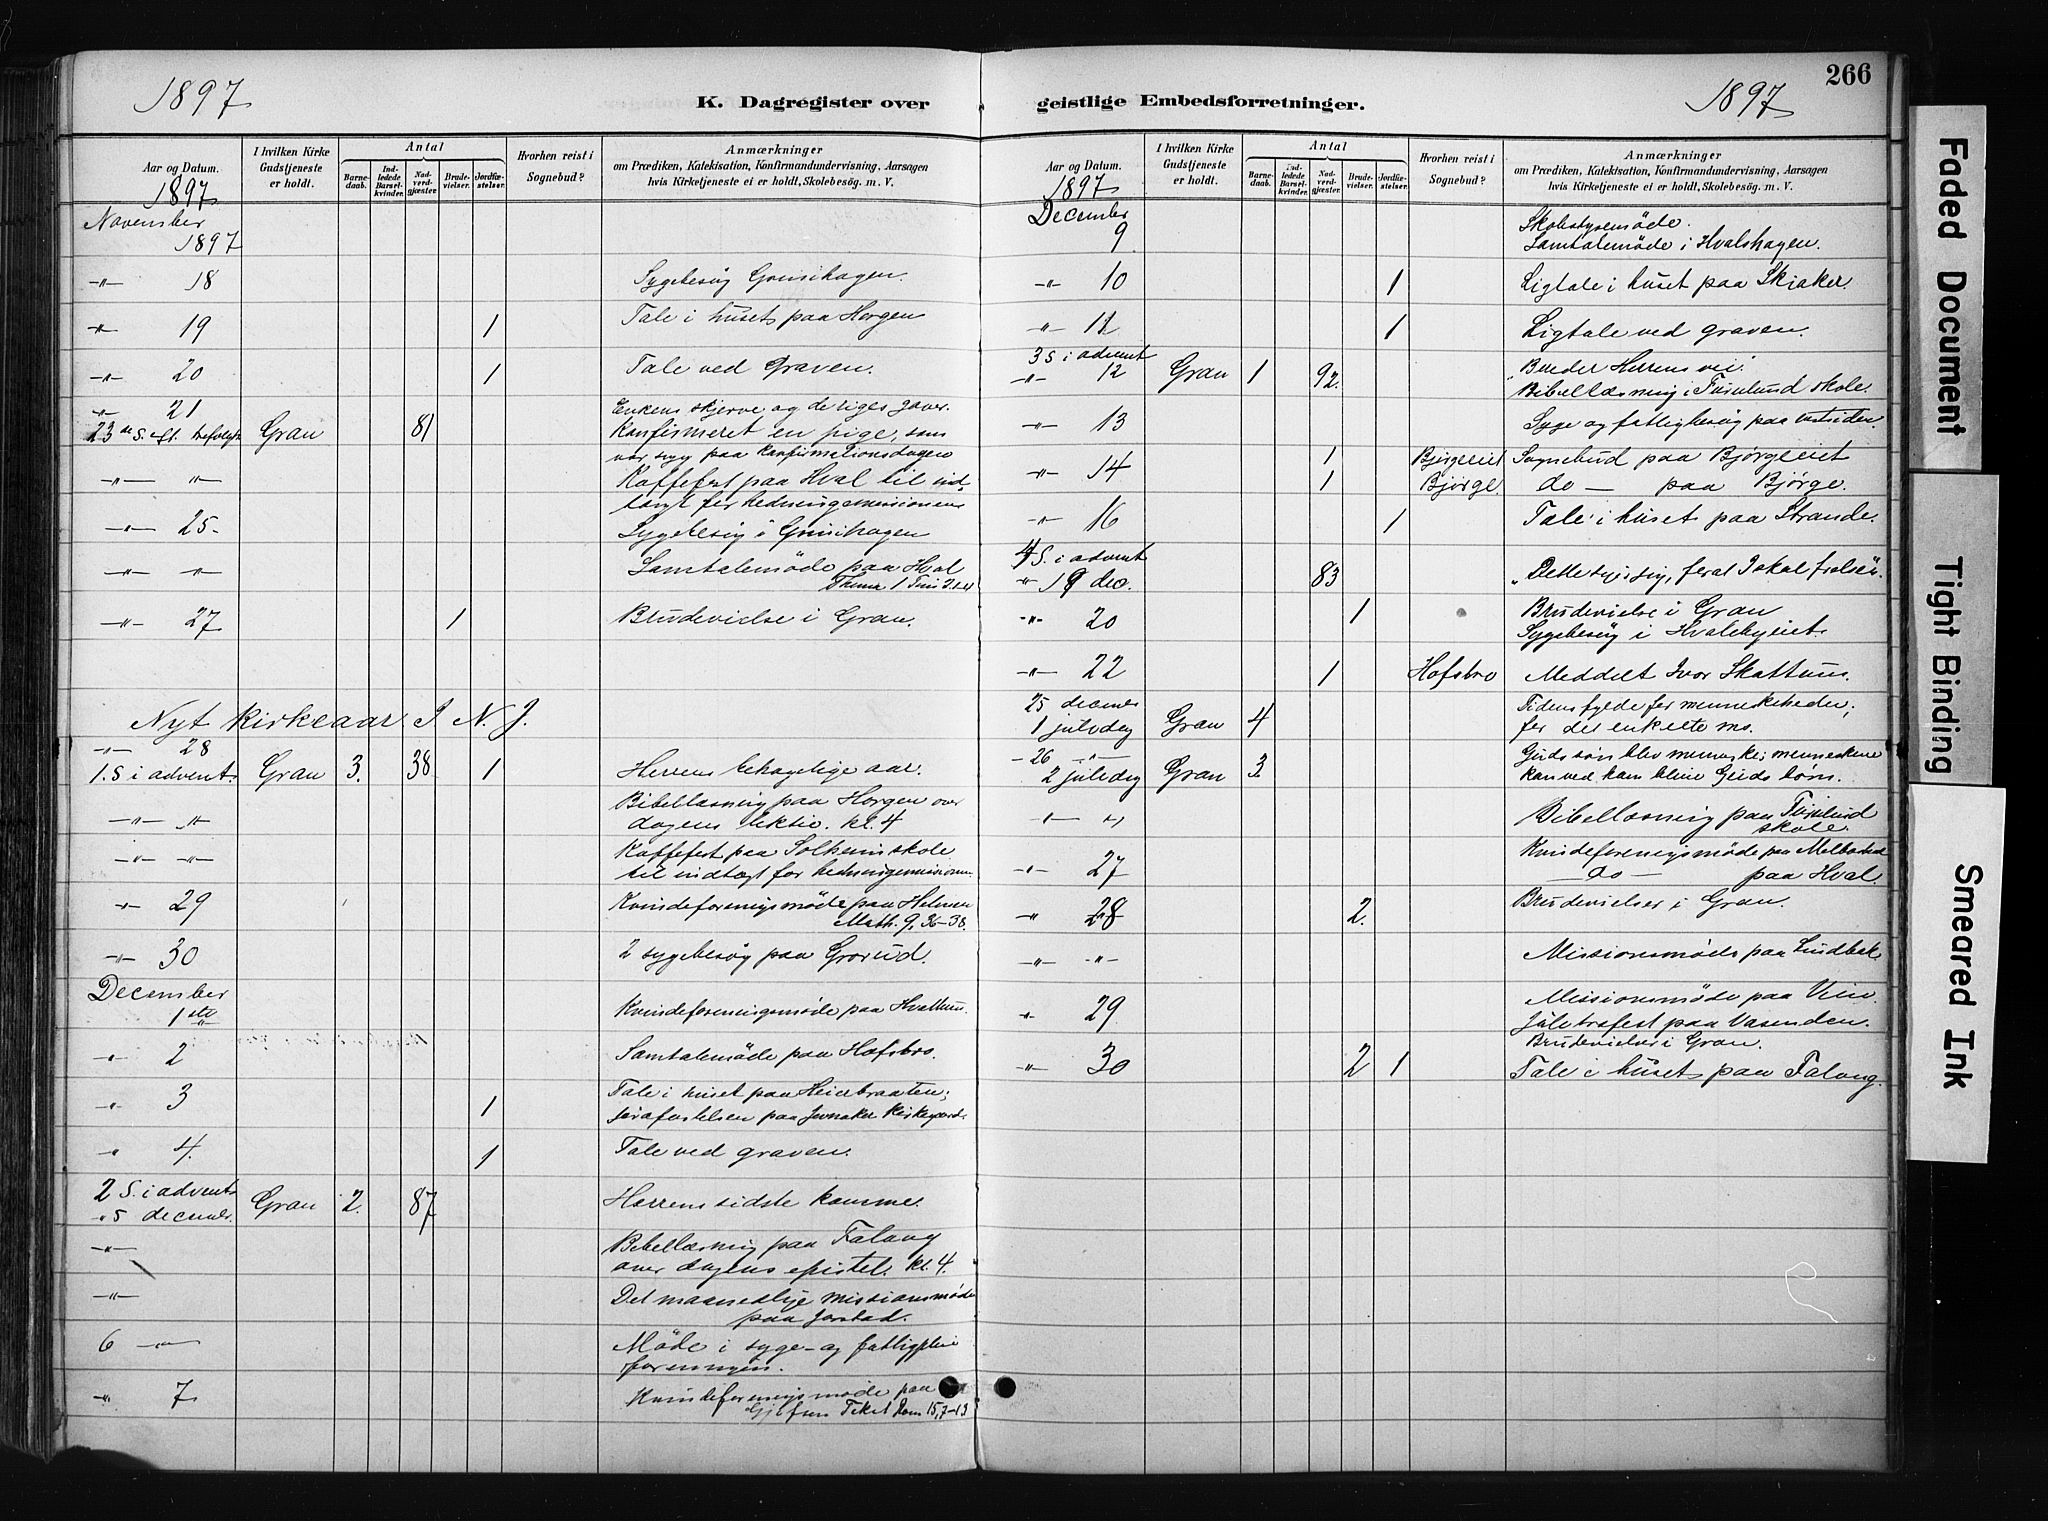 1897
K. Dagregister over
geistlige Embedsforretninger.
1897
266
Aar og Datum.
1897
I hvilken Kirke Gudstjeneste er holdt.
Antal
Barnedaab.
Indledede Barselkvinder.
Nadverdgjæster.
Brudevielser.
Jordfæstelser.
Hvorhen reist i Sognebud?
Anmærkninger
om Prædiken, Katekisation, Konfirmandundervisning, Aarsagen
hvis Kirketjeneste ei er holdt, Skolebesøg. m. V.
November
1897
-"- 18 Sygebesøg
" 19 1 Tale i huset paa Horgen
-"- 20 1 Tale ved Graven.
-"- 21 Enkens skjerv og de riges gaver.
23de S. eft. Gran 81 Konfirmeret en pige, som
var syg paa Konfirmationsdagen
-"- -"- Kaffefest paa Hval til ind-
tægt for hedningemissionen
-"- 25. Sygebesøg i
-"- -"- Samtalemöde paa Hval
Thema 1 Tim
-"- 27 1 Brudevielse i Gran.
Nyt kirkeaar I N. J.
-"- 28
1. S i advent. Gran 3. 38 1 Herrens behagelige aar.
-"- -"- Bibellæsning paa Horgen over
dagens lektie. kl. 4
-"- -"- Kaffefest paa Solheim skole
til indtægt for hedningemissionen
-"- 29 Kvindeforeningsmöde paa
Math. 9, 36-38.
-"- 30 2 sygebesøg paa Grorud.
December
1ste Kvindeforeningsmöde paa Hvattum.
" 2 Samtalemöde paa Hofsbro.
" 3 1 Tale i huset paa Heierbraaten;
jordfæstelsen paa Jevnaker Kirkegaard.
" 4. 1 Tale ved graven.
2 S. i advent Gran 2. 87 Herrens sidste komme.
"5 decembr.
-"- Bibellæsning paa Falang
over dagens epistel. kl. 4.
-"- Det maanedlige missionsmöde
paa Jorstad.
6 -"- Möde i syge- og fattigpleie
foreningen.
-"- 7 Kvindeforeningsmöde paa
Rom 15, 7-13
Aar og Datum.
1897
I hvilken Kirke Gudstjeneste er holdt.
Antal
Barnedaab.
Indledede Barselkvinder.
Nadverdgjæster.
Brudevielser.
Jordfæstelser.
Hvorhen reist i Sognebud?
Anmærkninger
om Prædiken, Katekisation, Konfirmandundervisning, Aarsagen
hvis Kirketjeneste ei er holdt, Skolebesøg. m. V.
December
9 Skolestyremöde.
Samtalemöde i Hvalshagen.
-"- 10 1 Ligtale i huset paa Skjaker.
-"- 11 1 Ligtale ved graven.
3 S i advent
-"- 12 Gran 1 92. Bereder Herrens vei.
Bibellæsning i skole.
-"- 13 Syge og fattigbesøg paa vestsiden
-"- 14 1 Bjørgeeiet Sognebud paa Bjørgeeiet
1 Bjørge. do - paa Bjørge.
-"- 16 1 Tale i huset paa Strande.
4 S. i advent
-"- 19 dec. 83
-"- 20 1 Brudevielse i Gran
Sygebesøg i
-"- 22 1 Hofsbro Meddelt Iver Skattum.
25 decembr
1 juledag Gran 4 Tidens fylde for menneskeheden;
for det enkelte ms.
-26 -"-
2 juledag Gran 3. Guds søn blev menneske; menneskene
kan ved ham blive Guds børn.
-"- -"- Bibellæsning paa
skole.
-"- 27 Kvindeforeningsmöde paa Melbostad
- do - paa Hval.
" 28 2. Brudevielser i Gran.
-"- -"- Missionsmöde paa Lindbæk.
" 29 Missionsmöde paa Vien.
Juletræfest paa Vasenden.
-"- 30 2 1 Brudevielser i Gran.
Tale i huset paa Falang.
Faded Document
Tight Binding
Smeared Ink